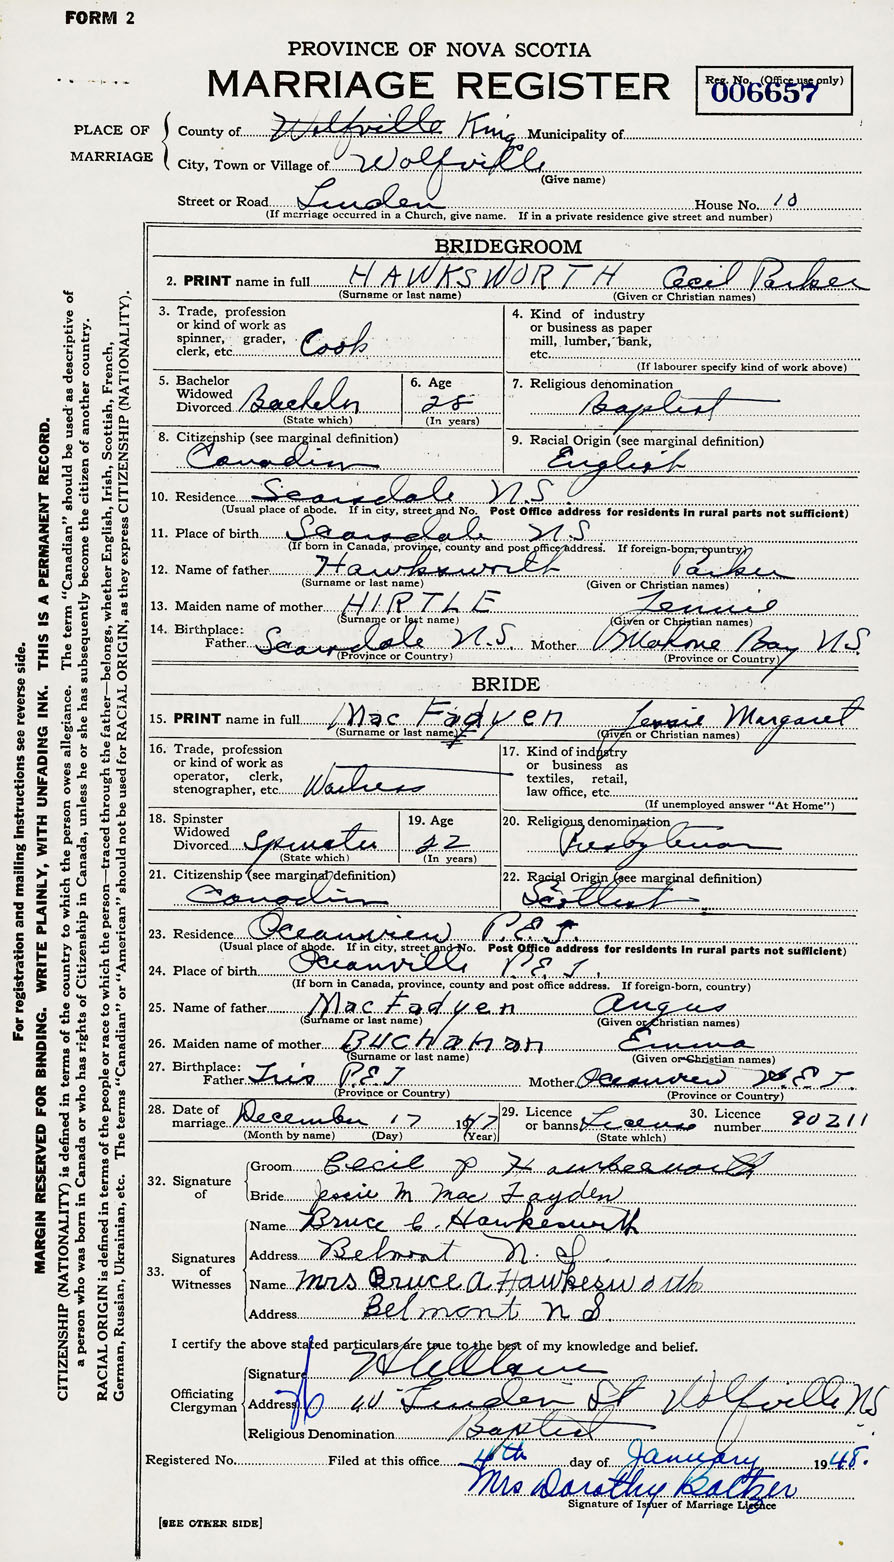 FORM 2
PROVINCE OF NOVA SCOTIA
MARRIAGE REGISTER
Reg. No. (Office use only)
006657
PLACE OF MARRIAGE
County of Wolfville King Municipality of
City, Town or Village of Wolfville
(Give name)
Street or Road Linden House No. 10
(If marriage occurred in a Church, give name. If in a private residence give street and number)
BRIDEGROOM
2. PRINT name in full HAWKSWORTH Cecil Parker
(Surname or last name) (Given or Christian names)
3. Trade, profession or kind of work as spinner, grader, clerk, etc. Cook
4. Kind of industry or business as paper mill, lumber, bank, etc.
(If labourer specify kind of work above)
5. Bachelor Widowed Divorced Bachelor
(State which)
6. Age 28
(In years)
7. Religious denomination Baptist
8. Citizenship (see marginal definition) Canadian
9. Racial Origin (see marginal definition) English
10. Residence Scarsdale N.S
(Usual place of abode. If in city, street and No. Post Office address for residents in rural parts not sufficient)
11. Place of birth Scarsdale N.S.
(If born in Canada, province, county and post office address. If foreign-born, country)
12. Name of father Hawksworth Parker
(Surname or last name) (Given or Christian names)
13. Maiden name of mother HIRTLE Jennie
(Surname or last name) (Given or Christian names)
14. Birthplace: Father Scarsdale N.S. Mother Mahone Bay N.S.
(Province or Country) (Province or Country)
BRIDE
15. PRINT name in full Mac Fadyen Jessie Margaret
(Surname or last name) (Given or Christian names)
16. Trade, profession or kind of work as operator, clerk, stenographer, etc. Waitress
17. Kind of industry or business as textiles, retail, law office, etc.
(If unemployed answer "At Home")
18. Spinster Widowed Divorced Spinster
(State which)
19. Age 22
(In years)
20. Religious denomination Presbyterian
21. Citizenship (see marginal definition) Canadian
22. Racial Origin (see marginal definition) Scottish
23. Residence Oceanview P.E.I.
(Usual place of abode. If in city, street and No. Post Office address for residents in rural parts not sufficient)
24. Place of birth Oceanville P.E.I.
(If born in Canada, province, county and post office address. If foreign-born, country)
25. Name of father MacFadyen Angus
(Surname or last name) (Given or Christian names)
26. Maiden name of mother Buchanan Emma
(Surname or last name) (Given or Christian names)
27. Birthplace: Father Iris P.E.I Mother Oceanview P.E.I.
(Province or Country) (Province or Country)
28. Date of marriage December 17 1947
(Month by name) (Day) (Year)
29. Licence or banns License
(State which)
30. Licence number 90211
32. Signature of
Groom Cecil P Hawkesworth
Bride Jessie M Mac Fayden
33. Signatures of Witnesses
Name Bruce C. Hawkesworth
Address Belmont N.S.
Name Mrs Bruce A Hawkesworth
Address Belmont N S.
I certify the above stated particulars are true to the best of my knowledge and belief.
Officiating Clergyman
Signature
Address 10 Linden St Wolfville NS
Religious Denomination Baptist
Registered No. Filed at this office 4th day of January 1948.
Mrs Dorothy Baltzer
Signature of Issuer of Marriage Licence
[SEE OTHER SIDE]
For registration and mailing instructions see reverse side.
MARGIN RESERVED FOR BINDING. WRITE PLAINLY, WITH UNFADING INK. THIS IS A PERMANENT RECORD.
CITIZENSHIP (NATIONALITY) is defined in terms of the country to which the person owes allegiance. The term "Canadian" should be used as descriptive of
a person who was born in Canada or who has rights of Citizenship in Canada, unless he or she has subsequently become the citizen of another country.
RACIAL ORIGIN is defined in terms of the people or race to which the person—traced through the father—belongs, whether English, Irish, Scottish, French,
German, Russian, Ukrainian, etc. The terms "Canadian" or "American" should not be used for RACIAL ORIGIN, as they express CITIZENSHIP (NATIONALITY).